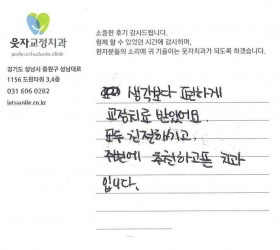 소중한 후기 감사드립니다.
함께 할 수 있었던 시간에 감사하며,
환자분들의 소리에 귀 기울이는 웃자치과가 되도록 하겠습니다.
웃자교정치과
경기도 성남시 중원구 성남대로
1156 도원타워 3,4층
031 606 0282
letssmile.co.kr
생각보다 편하게
교정치료 받았어요.
모두 친절하시고
주변에 추천하고픈 치과
입니다.